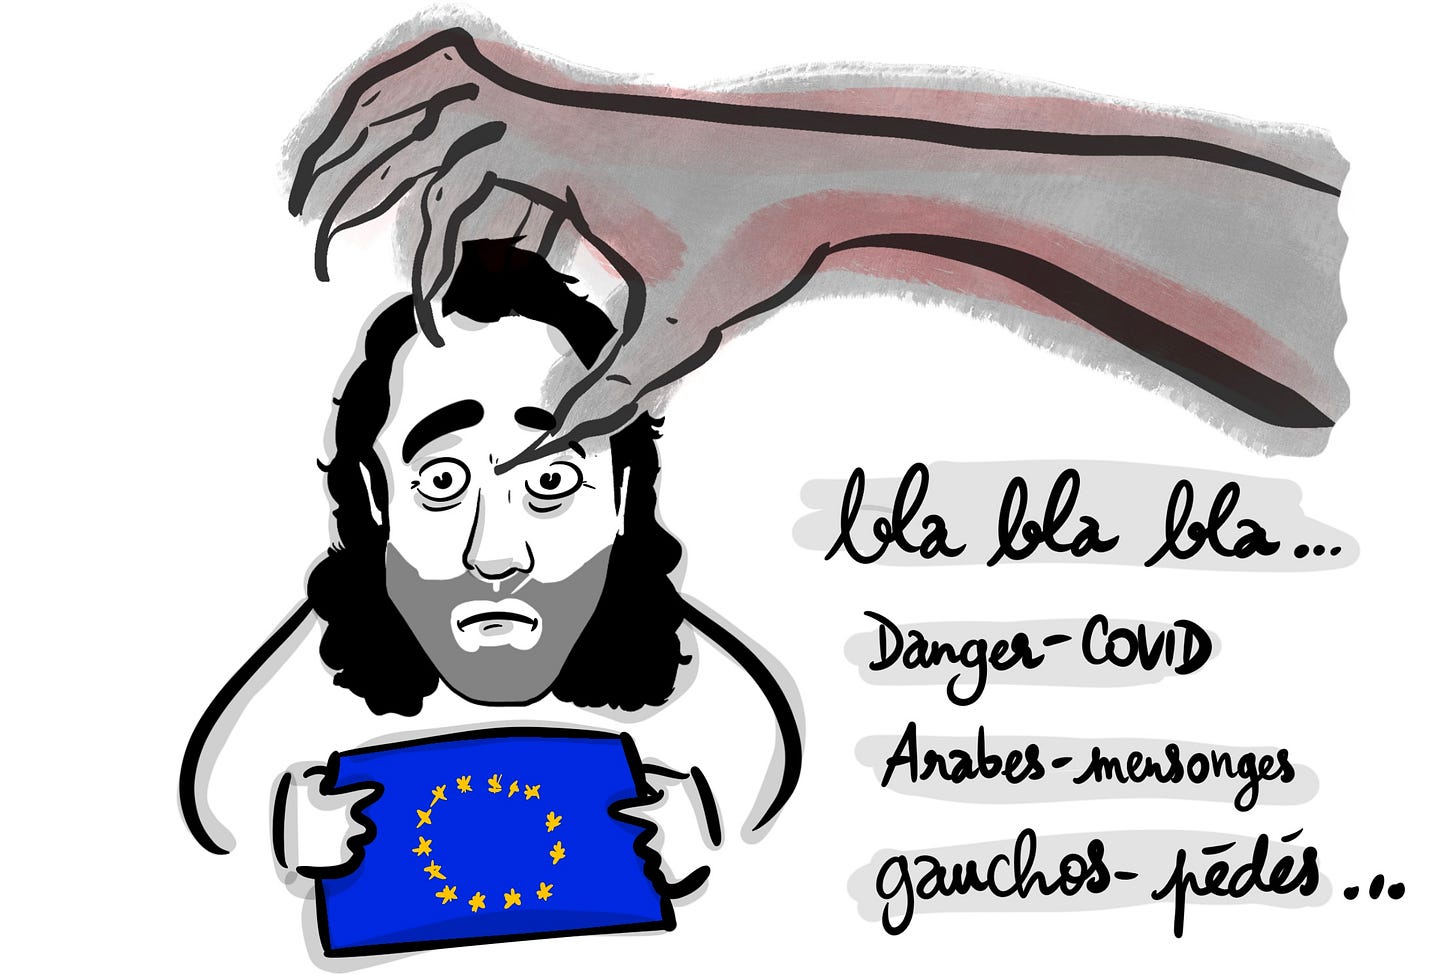 bla bla bla...
Danger-COVID
Arabes-mensonges
gauchos-pēdés...